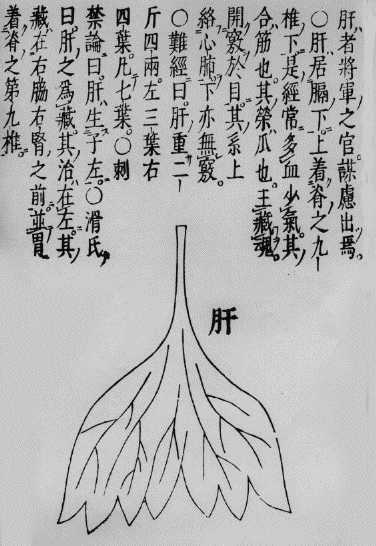 肝者將軍之官謀慮出焉
○肝居膈下上着脊之九
椎下是經常多血少氣其
合筋也其榮爪也主藏魂
開竅於目其系上
絡心肺下亦無竅
○難經曰肝重二
斤四兩左三葉右
四葉凡七葉○刺
禁論曰肝生于左○滑氏
曰肝之爲藏其治在左其
藏在右脇右腎之前並胃
着脊之第九椎
肝